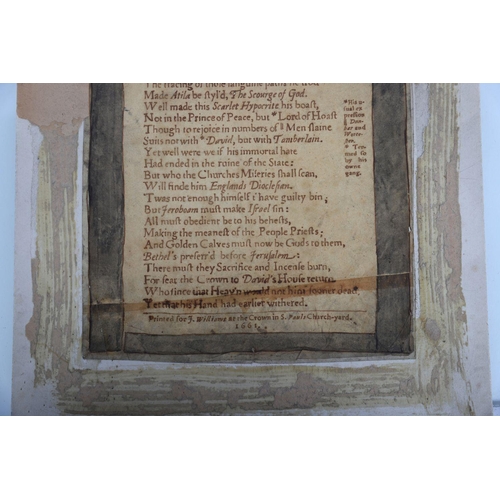 The tracing of those sanguine paths he trod
Made Atila be styl'd, The Scourge of God.
Well made this Scarlet Hypocrite his boast,
Not in the Prince of Peace, but * Lord of Hoast
Though to rejoice in numbers of Men slaine
Suits not with * David, but with Tamberlain.
Yet well were we if his immortal hate
Had ended in the ruine of the State:
But who the Churches Miseries shall scan,
Will finde him Englands Dioclesian.
'Twas not enough himself t'have guilty bin,
But Jeroboam must make Israel sin:
All must obedient be to his behests,
Making the meanest of the People Priests;
And Golden Calves must now be Gods to them,
Bethel's preserr'd before Jerusalem:
There must they Sacrifice and Incense burn,
For fear the Crown to David's House return
Who since that Heav'n would not him sooner dead,
Yet that his Hand had earlier withered.
Printed for J. Williams at the Crown in S. Pauls Church-yard.
1661.
* His u-
sual ex
pression
Dun-
bar and
Worce-
ster.
* Ter-
med so
by his
own
gang.